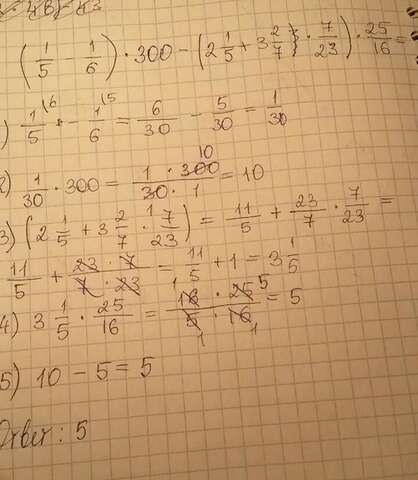 (1/5 - 1/6) · 300 - (2 1/5 + 3 2/7 · 7/23) · 25/16 =
) 1/5 (6 - 1/6 (5 = 6/30 - 5/30 = 1/30
2) 1/30 · 300 = 1 · 300 10 / 30 · 1 = 10
3) (2 1/5 + 3 2/7 · 7/23) = 11/5 + 23/7 · 7/23 =
11/5 + 23 · 7 / 7 · 23 = 11/5 + 1 = 3 1/5
4) 3 1/5 · 25/16 = 1 16 · 25 5 / 5 1 · 16 1 = 5
5) 10 - 5 = 5
Ответ: 5